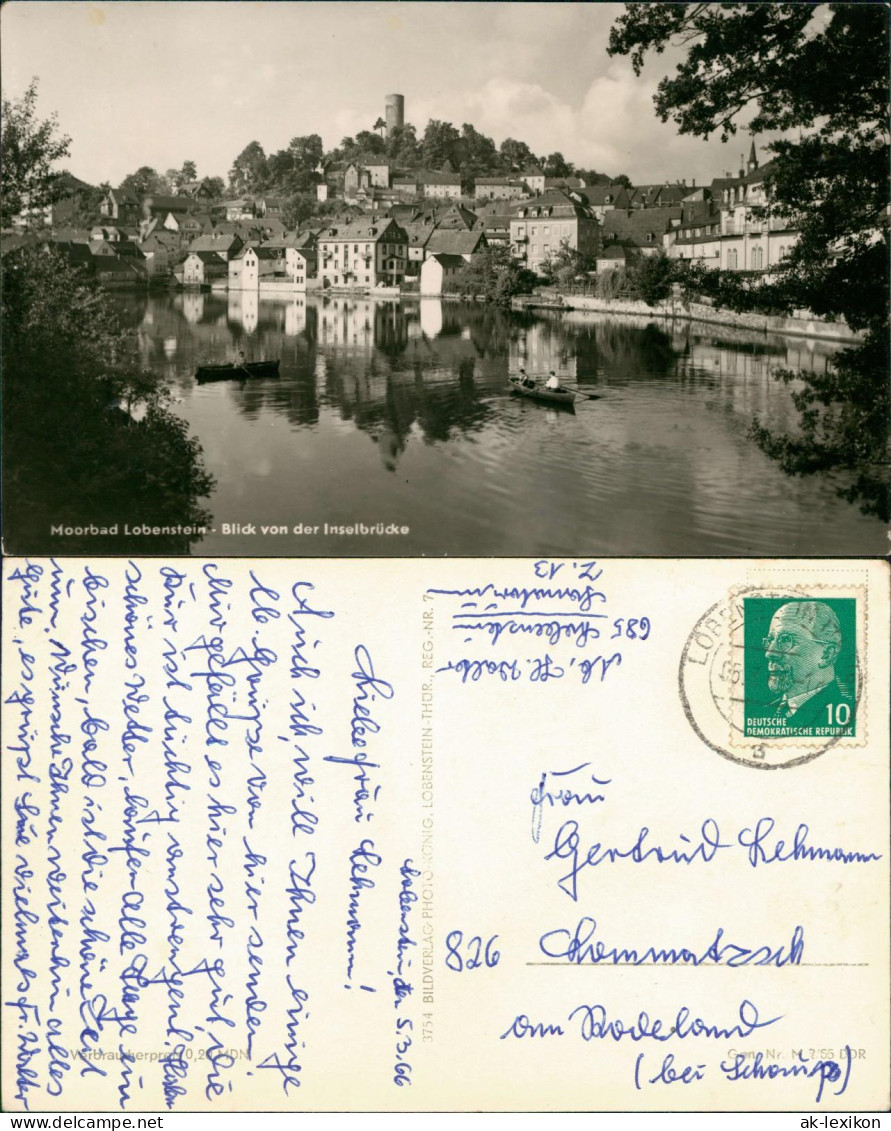 Moorbad Lobenstein - Blick von der Inselbrücke
Lobenstein, den 5.3.66
Liebe Frau Lehmann!
Auch ich will Ihnen einige
lb. Grüße von hier senden.
Mir gefällt es hier sehr gut, die
Kur ist tüchtig anstrengend. Haben
schönes Wetter, laufen alle Tage ein
bischen, bald ist die schöne Zeit
um. Wünsche Ihnen weiterhin alles
Gute, es grüßt Sie vielmals Fr. Walter
Verbraucherpreis 0,20 MDN
3754 BILDVERLAG PHOTO-KÖNIG, LOBENSTEIN-THÜR., REG.-NR. 7
685 Lobenstein
Sanatorium
Z. 13
LOBENSTEIN
DEUTSCHE
DEMOKRATISCHE REPUBLIK
10
a
Frau
Gertrud Lehmann
826 Lommatzsch
am Rodeland
Gen. Nr. DDR
www.delcampe.net
ak-lexikon